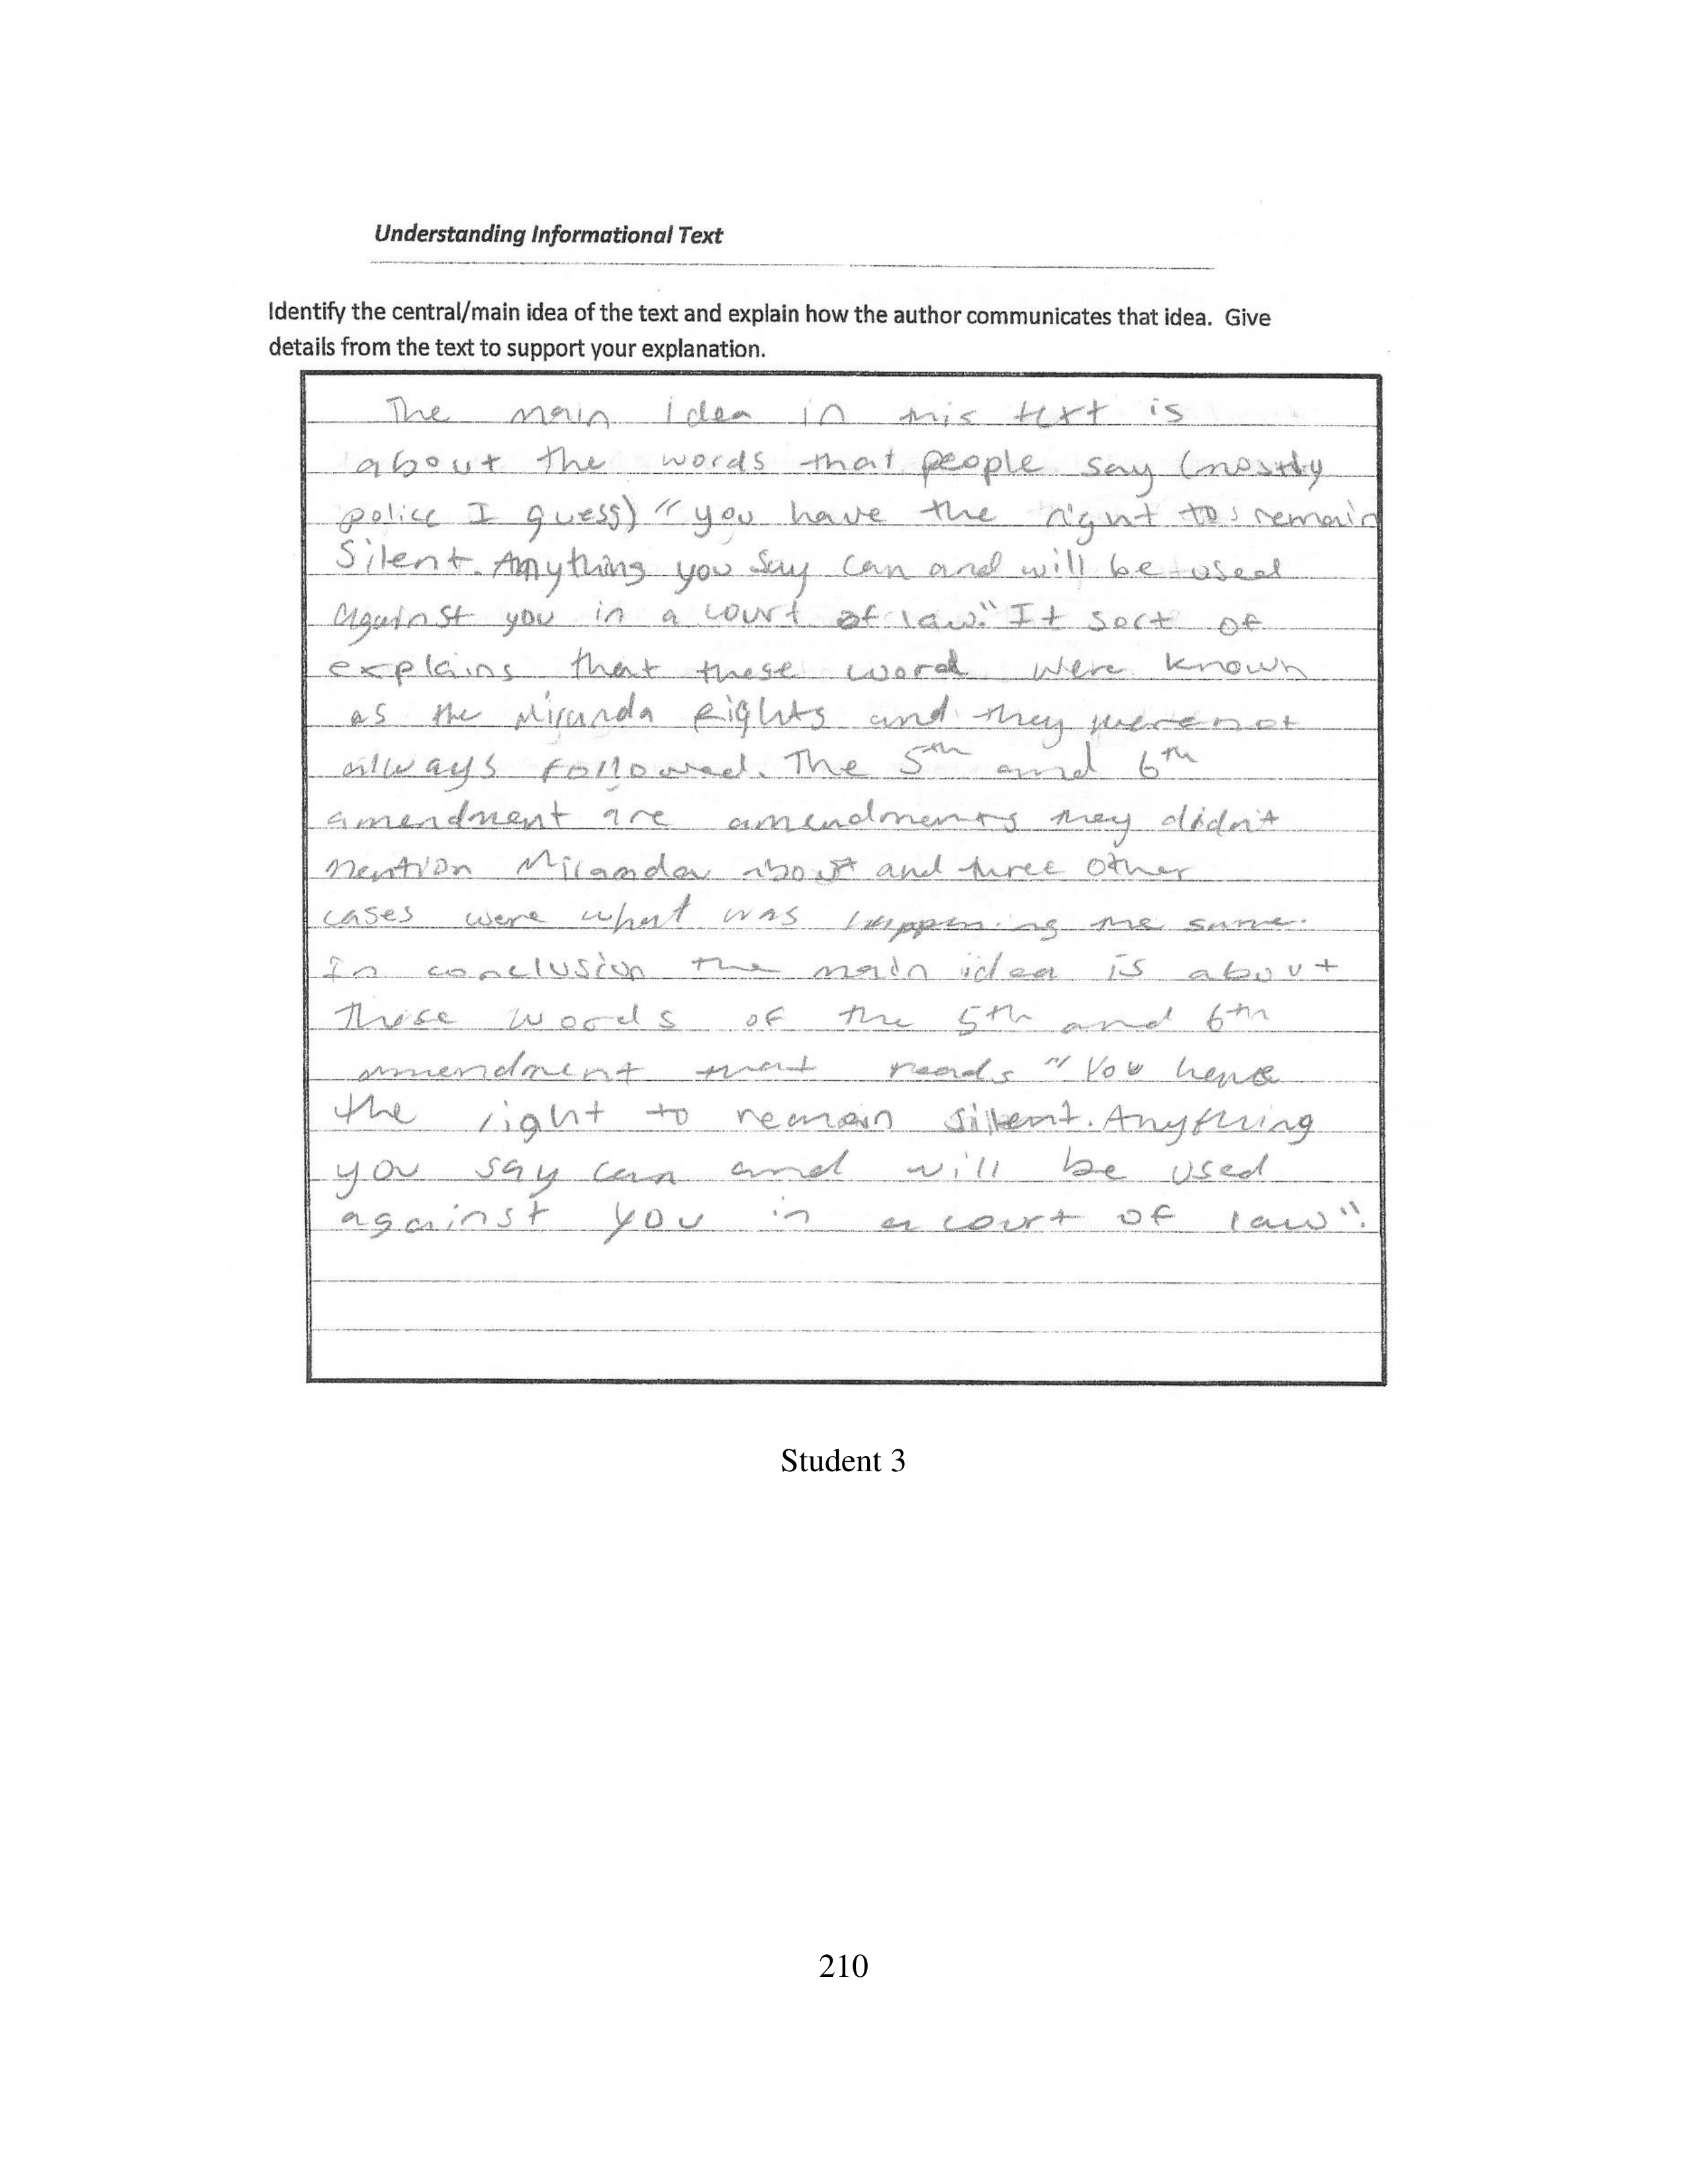 Understanding Informational Text
Identify the central/main idea of the text and explain how the author communicates that idea. Give
details from the text to support your explanation.
The main idea in this text is
about the words that people say (mostly
police I guess) "you have the right to remain
Silent. Anything you say can and will be used
against you in a court of law." It sort of
explains that these word were known
as the Miranda Rights and they were not
always followed. The 5th and 6th
amendment are amendments they didn't
mention Miranda about and three other
cases were what was happening the same.
In conclusion the main idea is about
those words of the 5th and 6th
amendment that reads "You have
the right to remain silent. Anything
you say can and will be used
against you in a court of law".
Student 3
210